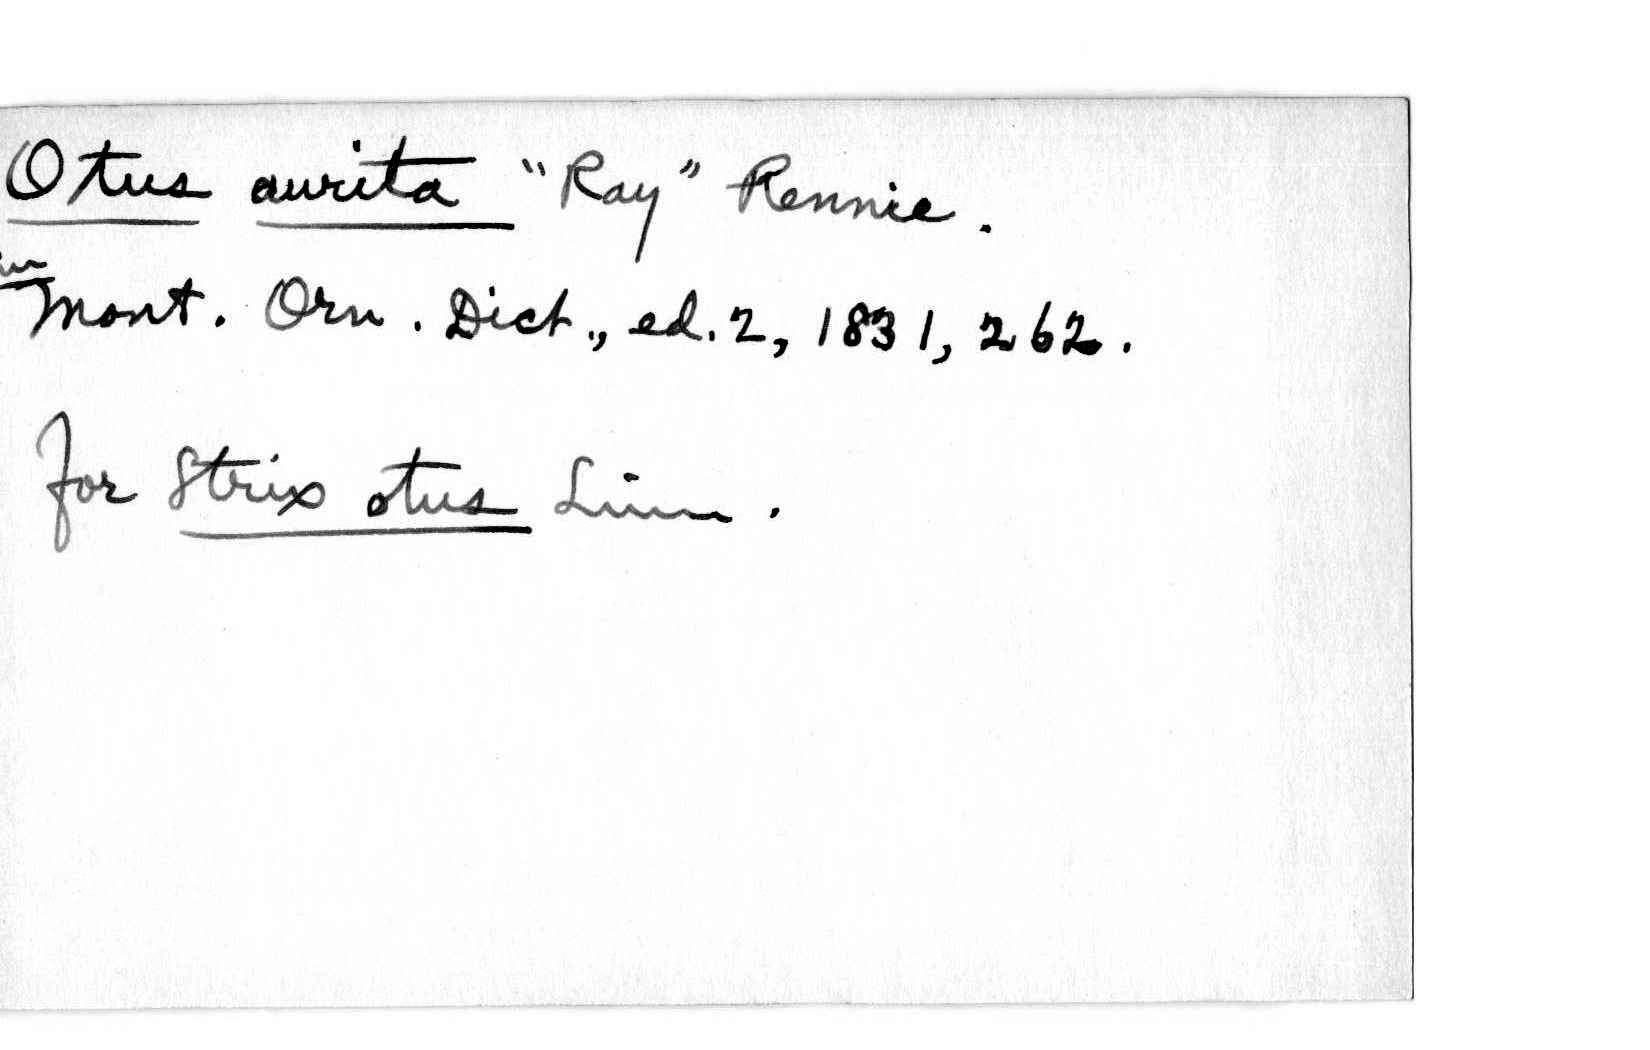 Otus aurita "Ray" Rennie.
in Mont. Orn. Dict., ed. 2, 1831, 262.
for Strix otus Linn.